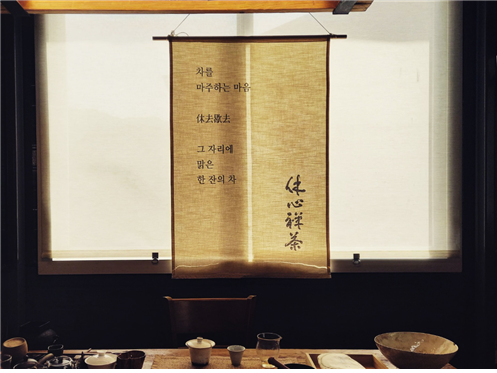 차를
마주하는 마음
休去歇去
그 자리에
맑은
한 잔의 차
休心禪茶